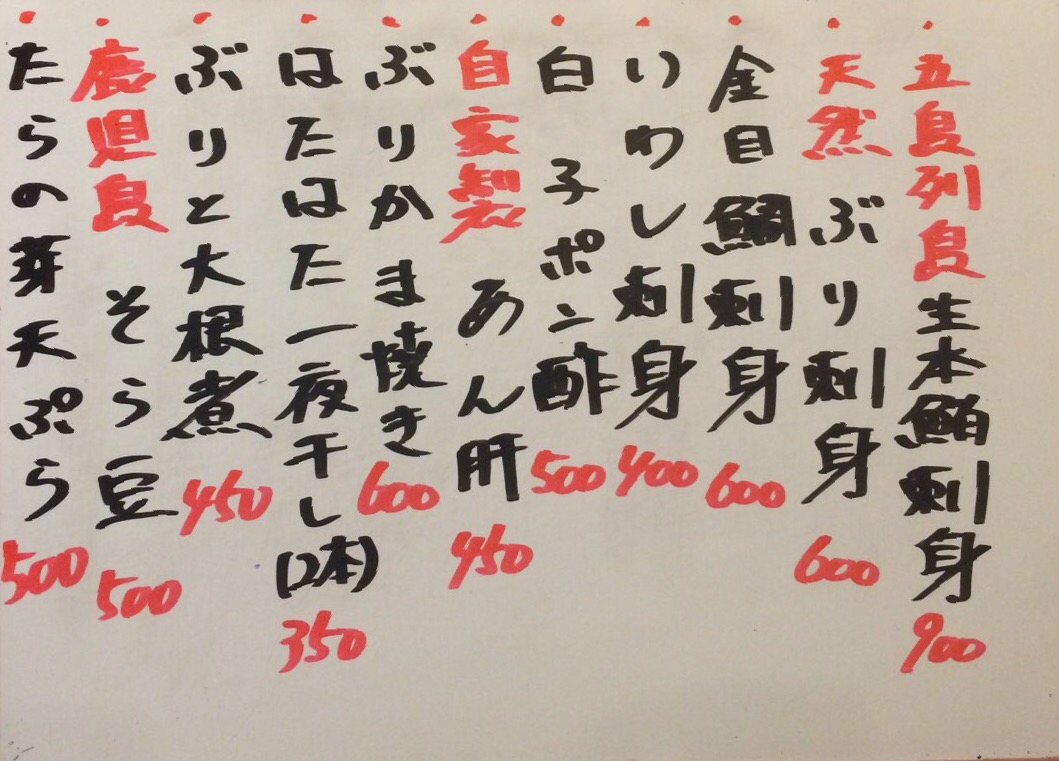 ・五島列島生本鮪刺身 900
・天然ぶり刺身 600
・金目鯛刺身 600
・いわし刺身 400
・白子ポン酢 500
・自家製あん肝 450
・ぶりかま焼き 600
・はたはた一夜干し(2本) 350
・ぶりと大根煮 450
・鹿児島そら豆 500
・たらの芽天ぷら 500